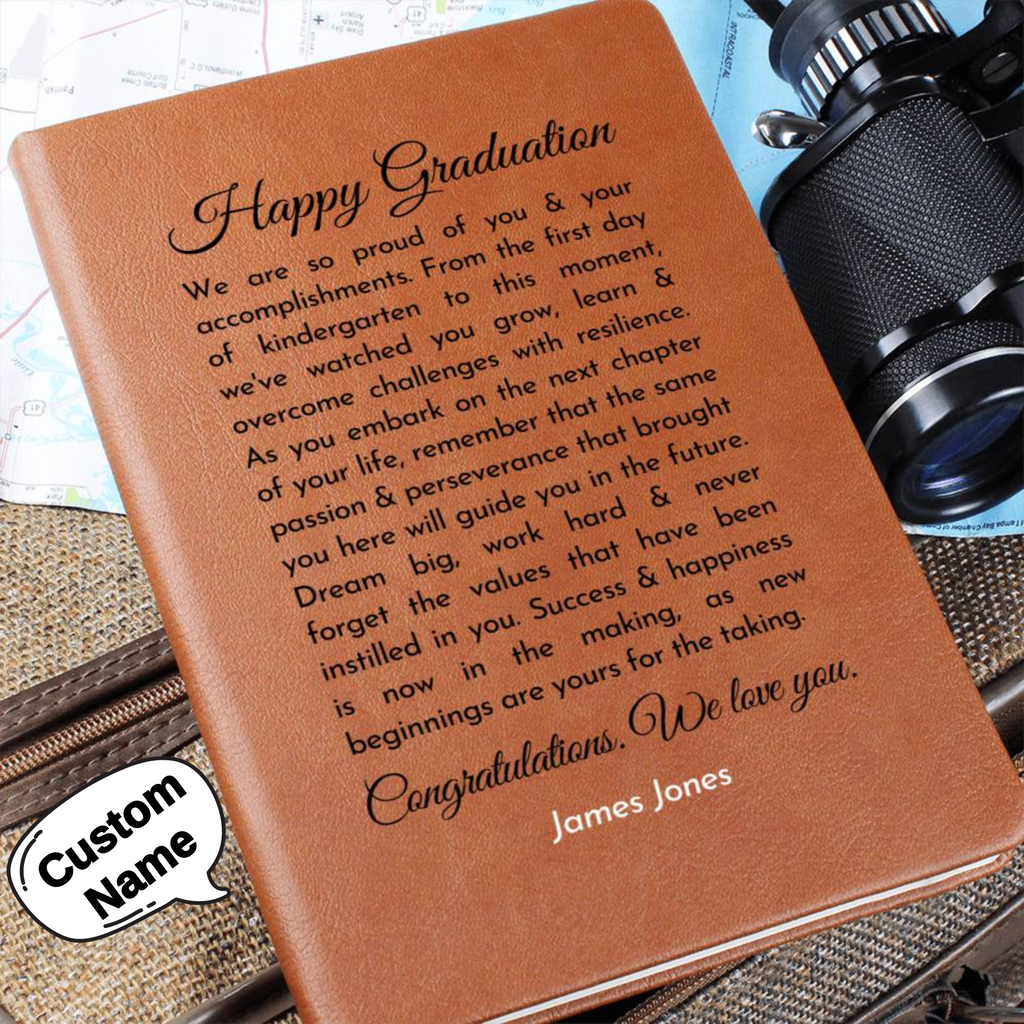 Happy Graduation
We are so proud of you & your
accomplishments. From the first day
of kindergarten to this moment,
we've watched you grow, learn &
overcome challenges with resilience.
As you embark on the next chapter
of your life, remember that the same
passion & perseverance that brought
you here will guide you in the future.
Dream big, work hard & never
forget the values that have been
instilled in you. Success & happiness
is now in the making, as new
beginnings are yours for the taking.
Congratulations. We love you.
James Jones
Custom
Name
Parrish
41
INTRACOASTAL